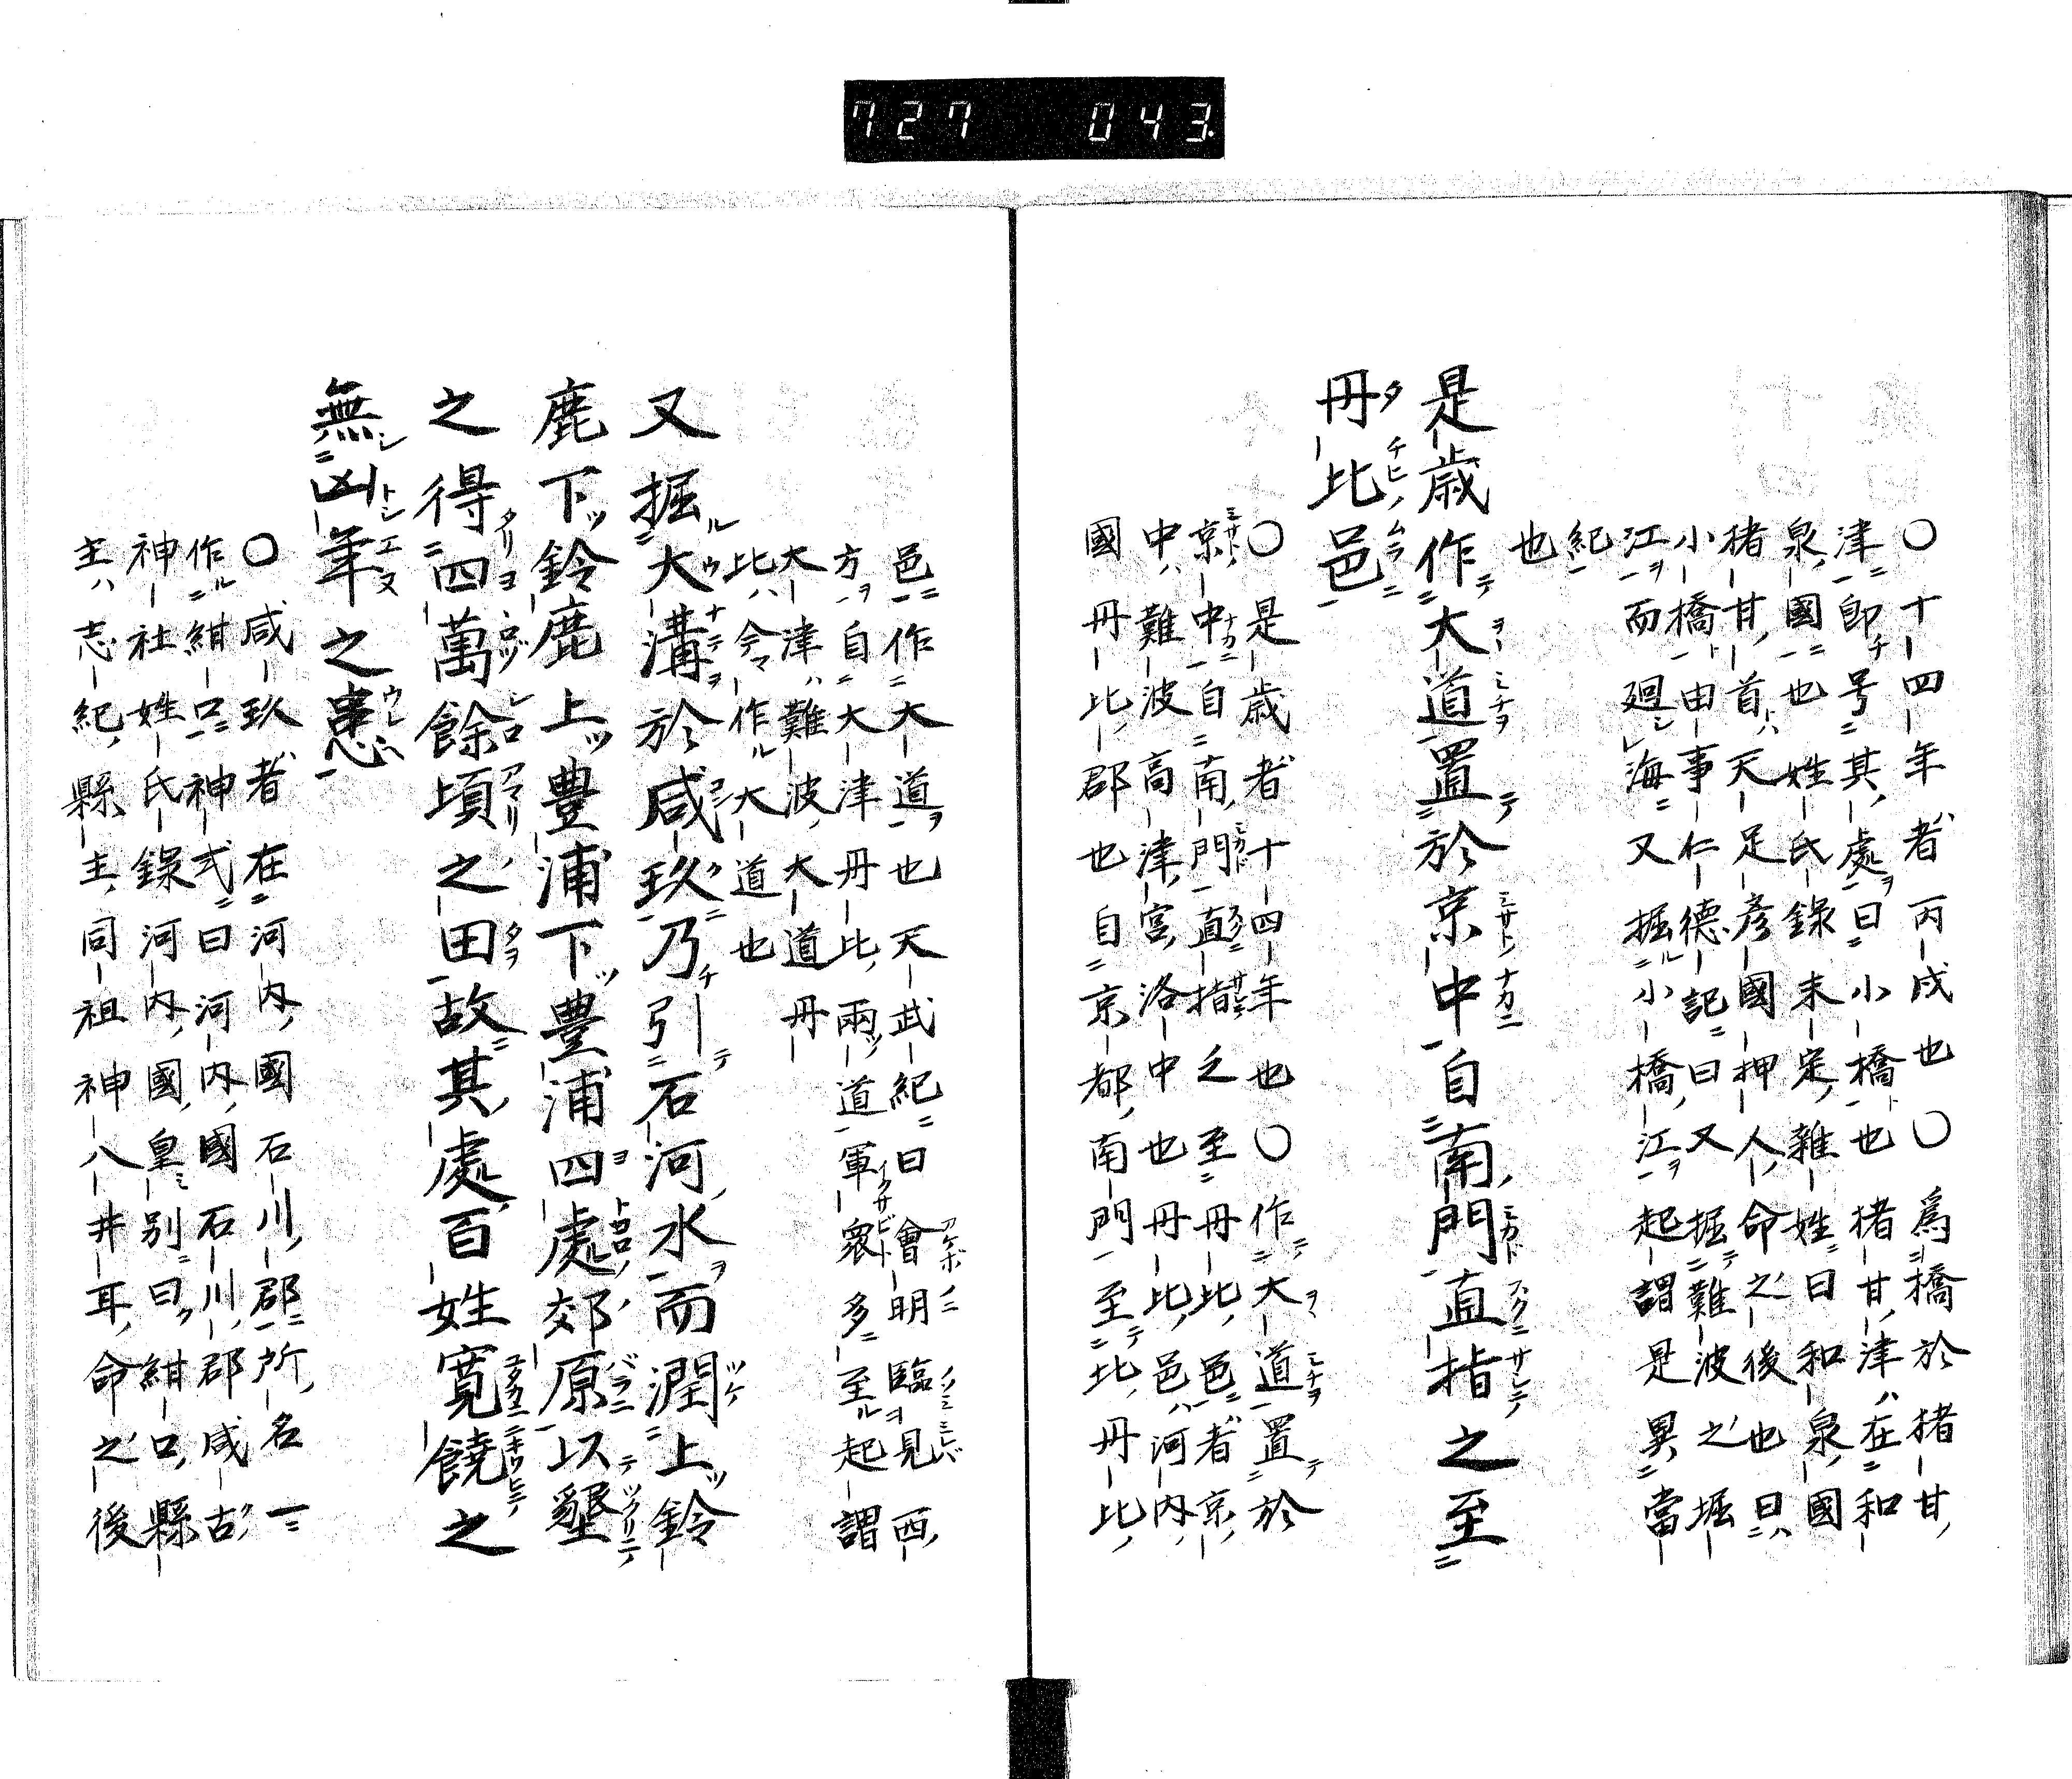 727 043
〇十四年者丙戌也〇爲橋於猪甘
津即号其處曰小橋也猪甘津ハ在和
泉國也姓氏錄未定雜姓曰和泉國
猪甘首ハ天足彦國押人命之後也曰ハ
小橋由事仁德記曰又掘難波之堀
江而廻海又掘小橋江起謂是異當
紀
也
是歳作大道置於京中自南門直指之至
丹比邑
〇是歳者十四年也〇作大道置於
京中自南門直指之至丹比邑者京
中ハ難波高津宮洛中也丹比邑ハ河内
國丹比郡也自京都南門至比丹比
邑作大道也天武紀曰會明臨見西
方自大津丹比兩道軍衆多至起謂
大津ハ難波大道丹
比ハ今作大道也
又掘大溝於咸玖乃引石河水而潤上鈴
鹿下鈴鹿上豊浦下豊浦四處郊原以墾
之得四萬餘頃之田故其處百姓寛饒之
無凶年之患
〇咸玖者在河内國石川郡所名一
作紺口神式曰河内國石川郡咸古
神社姓氏錄河内國皇別曰紺口縣
主ハ志紀縣主同祖神八井耳命之後